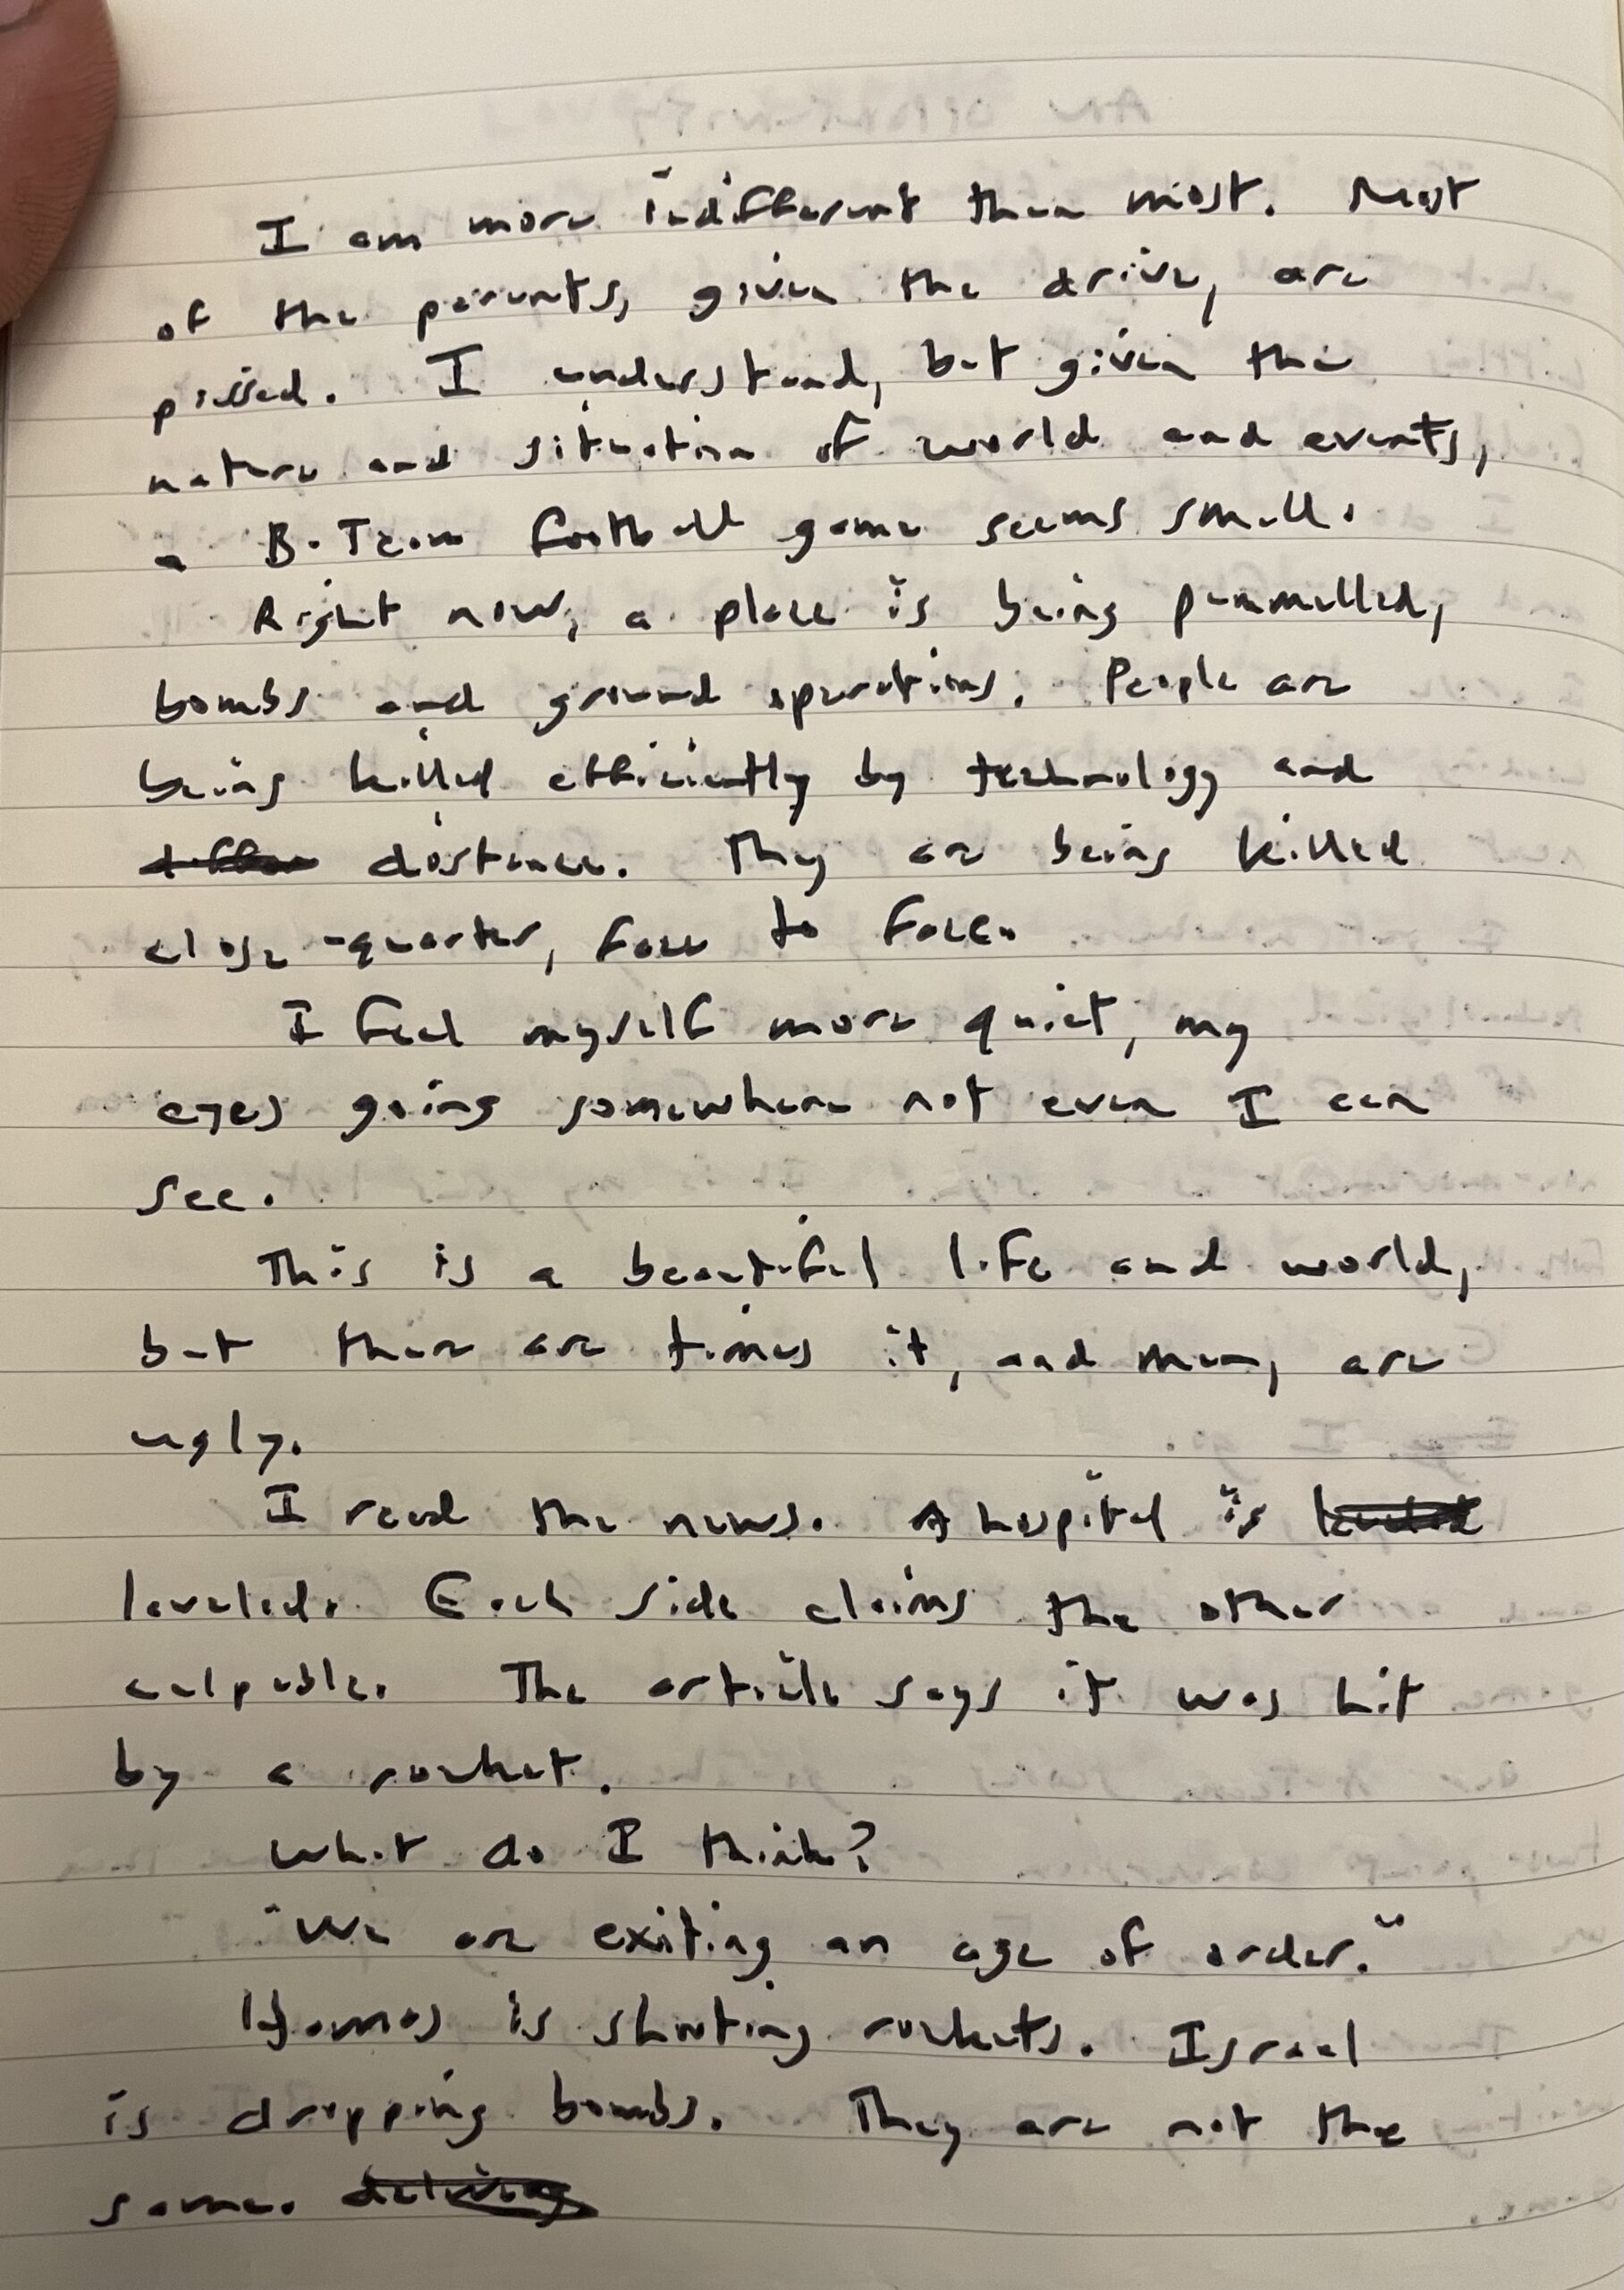 I am more indifferent than most. Most
of the parents, given the drive, are
pissed. I understand, but given the
nature and situation of world and events,
a B-Team football game seems small.
Right now, a place is being pummelled,
bombs and ground operations. People are
being killed efficiently by technology and
distance. They are being killed
close-quarter, face to face.
I feel myself more quiet, my
eyes going somewhere not even I can
see.
This is a beautiful life and world,
but there are times it, and men, are
ugly.
I read the news. A hospital is
leveled. Each side claims the other
culpable. The article says it was hit
by a rocket.
What do I think?
"We are exiting an age of order."
Hamas is shooting rockets. Israel
is dropping bombs. They are not the
same.